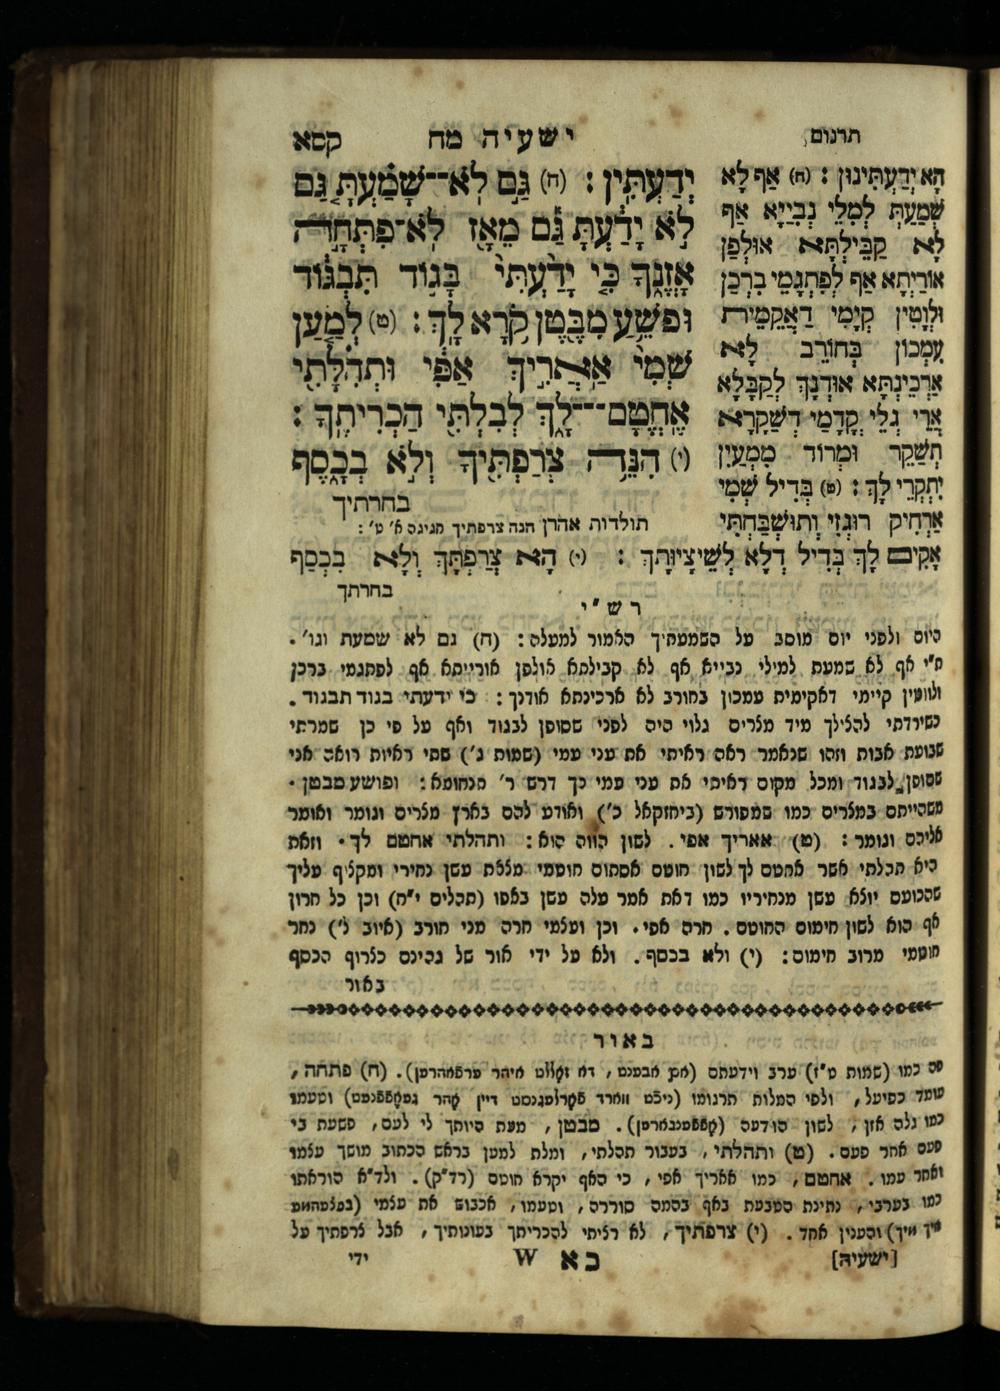 תרגום ישעיה מח קסא
הָא יְדַעְתִּינוּן : (ח) אַף לָא
שְׁמַעַתְּ לְמִלֵּי נְבִיַּיָּא אַף
לָא קַבֵּילְתָּא אוּלְפַן
אוֹרַיְתָא אַף לְפִתְגָמֵי בִרְכַן
וּלְוָטִין קְיָמֵי דַאֲקֵמִית
עִמְכוֹן בְּחוֹרֵב לָא
אַרְכֵינְתָּא אוּדְנָךְ לְקַבָּלָא
אֲרֵי גְלֵי קֳדָמַי דְשַׁקָּרָא
תְּשַׁקֵּר וּמָרוֹד מִמְּעַיִן
יִתְקְרֵי לָךְ : (ט) בְּדִיל שְׁמִי
אַרְחִיק רוּגְזִי וְתוּשְׁבַּחְתִּי
אָקִים לָךְ בְּדִיל דְּלָא לְשֵׁיצָיוּתָךְ : (י) הָא צְרַפְתָּךְ וְלָא בִכְסַף
בחרתך
יְדַעְתִּין : (ח) גַּם לֹא־־שָׁמַעְתָּ גַּם
לֹא יָדַעְתָּ גַּם מֵאָז לֹא־פִתְּחָה
אָזְנֶךָ כִּי יָדַעְתִּי בָּגוֹד תִּבְגּוֹד
וּפֹשֵׁעַ מִבֶּטֶן קֹרָא לָךְ : (ט) לְמַעַן
שְׁמִי אַאֲרִיךְ אַפִּי וּתְהִלָּתִי
אֶחֱטָם־־־לָךְ לְבִלְתִּי הַכְרִיתֶךָ :
(י) הִנֵּה צְרַפְתִּיךָ וְלֹא בְכָסֶף
בחרתיך
תולדות אהרן הנה צרפתיך חגיגה ח׳ ט׳ :
רש״י
היום ולפני יום מוסב על השמעתיך האמור למעלה : (ח) גם לא שמעת וגו׳ .
ת״י אף לא שמעת למילי נבייא אף לא קבילתא אולפן אורייתא אף לפתגמי ברכן
ולווטין קיימי דאקימית עמכון בחורב לא ארכינתא אודנך : כי ידעתי בגוד תבגוד .
כשירדתי להצילך מיד מצרים גלוי היה לפני שסופן לבגוד ואף על פי כן שמרתי
שבועת אבות וזהו שנאמר ראה ראיתי את עני עמי (שמות ג׳) שתי ראיות רואה אני
שסופן לבגוד ומכל מקום ראיתי את עני עמי כך דרש ר׳ תנחומא : ופושע מבטן .
משהייתם במצרים כמו שמפורש (ביחזקאל כ׳) ואודע להם בארץ מצרים וגומר ואומר
אליהם וגומר : (ט) אאריך אפי . לשון הווה הוא : ותהלתי אחטם לך . וזאת
היא תהלתי אשר אחטם לך לשון חוטם אסתום חוטמי מצאת עשן נחירי ומקציף עליך
שהכועס יוצא עשן מנחיריו כמו דאת אמר עלה עשן באפו (תהלים י״ח) וכן כל חרון
אף הוא לשון חימום החוטם . חרה אפי . וכן ועצמי חרה מני חורב (איוב ל׳) נחר
חוטמי מרוב חימום : (י) ולא בכסף . ולא על ידי אור של גהינם כצרוף הכסף
באור
באור
פה כמו (שמות ט״ז) ערב וידעתם (אם אבענט , דא זאללט איהר ערפאהרען) . (ח) פתחה ,
עומד כפיעל , ולפי המלות תרגומו (ניכט ווארד פֿאָרלענגסט דיין אָהר געאָפֿפֿנעט) וטעמו
כמו גלה אזן , לשון הודעה (אָפֿפֿענבארען) . מבטן , מעת היותך לי לעם , פשעת בי
פעם אחר פעם . (ט) ותהלתי , בעבור תהלתי , ומלת למען בראש הכתוב מושך עצמו
ואחר עמו . אחטם , כמו אאריך אפי , כי האף יקרא חוטם (רד״ק) . ולד״א הוראתו
כמו בערבי , נתינת הטבעת באף בהמה סוררה , וטעמו , אכבוש את עצמי (בעצעהמע
איך מיך) והענין אחד . (י) צרפתיך , לא רציתי להכריתך בעונותיך , אבל צרפתיך על
[ישעיה] כא W ידי